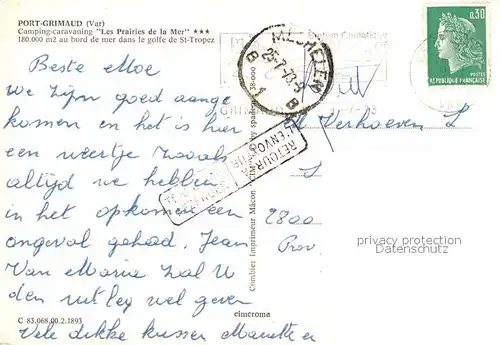 PORT-GRIMAUD (Var)
Camping-caravaning "Les Prairies de la Mer" ★★★
180.000 m2 au bord de mer dans le golfe de St-Tropez
Beste Moe
we zijn goed aange
komen en het is hier
een weertje zoals
altijd we hebben
in het opkomen een
ongeval gehad. Jean
Van Marie zal U
den uitleg wel geven
Vele dikke kussen
C 83.068.00.2.1893
cimcrome
Combier Imprimeur Mâcon
MECHELEN
B
25-7-73
B
GRIMAUD
RETOUR
A L'ENVOYEUR
0,30
POSTES
REPUBLIQUE FRANÇAISE
Verhoeven L
2800
Prov.
privacy protection
Datenschutz